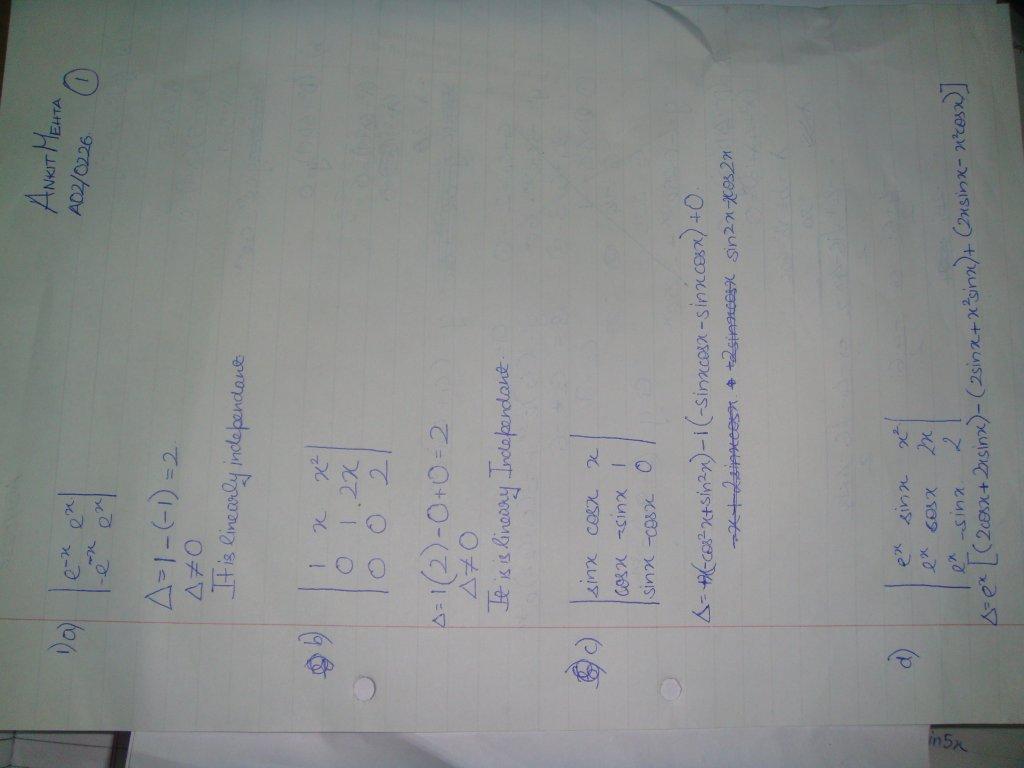 ANKIT MEHTA
A02/0226 ①
1)a) | e⁻ˣ eˣ |
| -e⁻ˣ eˣ |
Δ = 1 - (-1) = 2
Δ ≠ 0
It is linearly independent
b) | 1 x x² |
| 0 1 2x |
| 0 0 2 |
Δ = 1(2) - 0 + 0 = 2
Δ ≠ 0
It is lineary Independant
c) | sinx cosx x |
| cosx -sinx 1 |
| sinx -cosx 0 |
Δ = x(-cos²x + sin²x) - 1(-sinxcosx - sinxcosx) + 0
sin2x - xcos2x
d) | eˣ sinx x² |
| eˣ cosx 2x |
| eˣ -sinx 2 |
Δ = eˣ [(2cosx + 2xsinx) - (2sinx + x²sinx) + (2xsinx - x²cosx)]
in5x